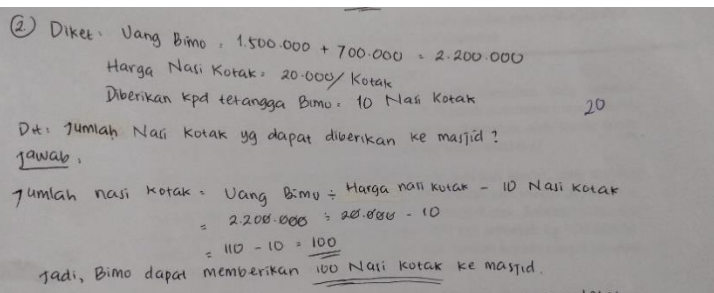 ② Diket: Uang Bimo = 1.500.000 + 700.000 = 2.200.000
Harga Nasi Kotak = 20.000/ Kotak
Diberikan kpd tetangga Bimo = 10 Nasi Kotak
20
Dit: Jumlah Nasi Kotak yg dapat diberikan ke masjid?
Jawab:
Jumlah nasi kotak = Uang Bimo ÷ Harga nasi kotak - 10 Nasi Kotak
= 2.200.000 ÷ 20.000 - 10
= 110 - 10 = 100
Jadi, Bimo dapat memberikan 100 Nasi kotak ke masjid.